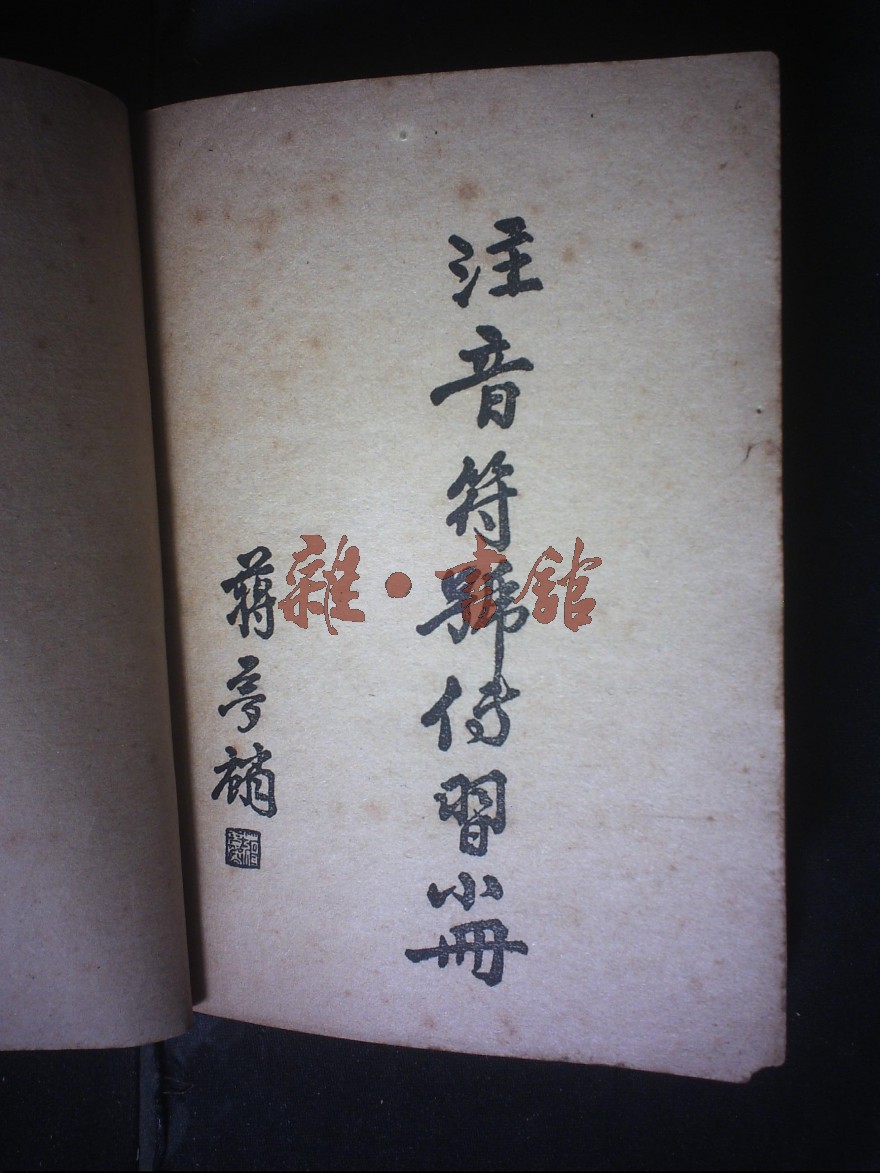 注音符號传習小冊
蔣夢麟
雜·書館